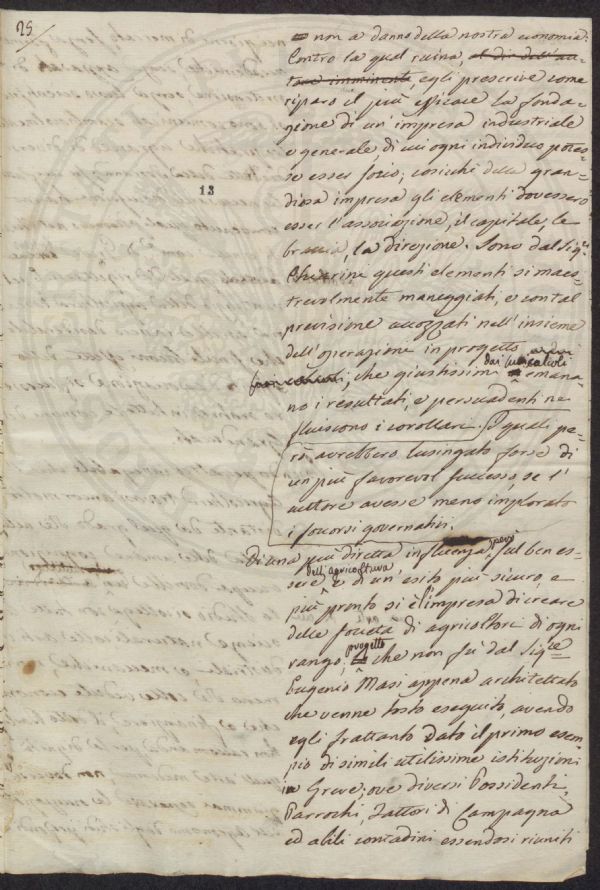 25
non a danno della nostra economia.
Contro la qual ruina, al dir dell'au-
tore imminente, egli prescrive come
riparo il più efficace la fonda-
zione di un'impresa industriale
e generale di cui ogni individuo potes-
se esser socio; cosicchè della gran-
diosa impresa gli elementi dovessero
esser l'associazione, il capitale, le
braccia, la direzione. Sono dal Sigre.
questi elementi sì maes-
trevolmente maneggiati, e con tal
previsione accozzati nell'insieme
dell'operazione in progetto
dai calcoli
che giustissimi emana-
no i resultati, e persuadenti ne
fluiscono i corollarj. I quali pe-
rò avrebbero lusingato forse di
un più favorevol successo, se l'
autore avesse meno implorato
i soccorsi governativi.
13
Di una più diretta influenza sul ben es-
dell'agricoltura
sere e di un'esito più sicuro, e
più pronto si è l'impresa di creare
delle società di agricoltori di ogni
progetto
rango; che non fù dal Sigre
Eugenio Masi appena architettato
che venne tosto eseguito, avendo
egli frattanto dato il primo esem-
pio di simili utilissime istituzioni
in Greve; ove diversi Possidenti,
Parrochi, Fattori di Campagna
ed abili contadini essendosi riuniti